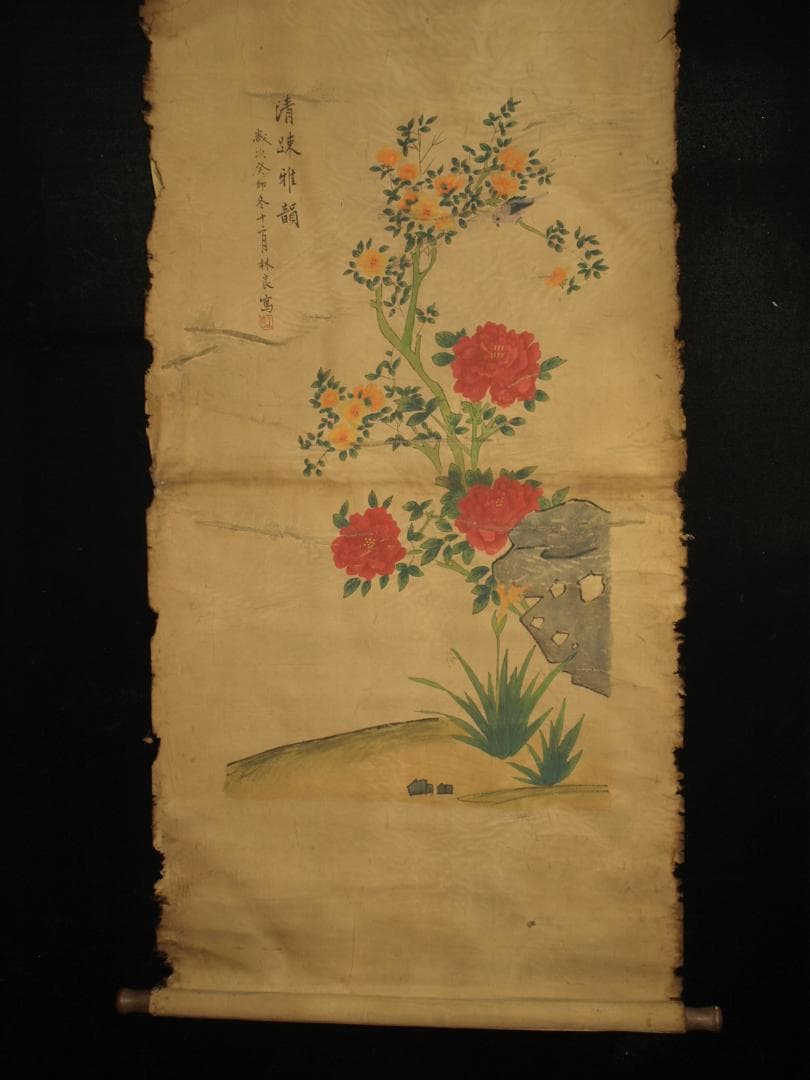 清疎雅韻
歲次癸卯冬十二月林良寫